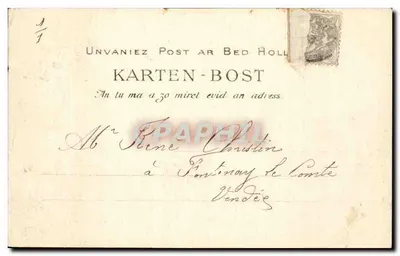 1/1
UNVANIEZ POST AR BED HOLL
KARTEN-BOST
An tu ma a zo miret evid an adress.
Mr René Christin
à Fontenay le Comte
Vendée